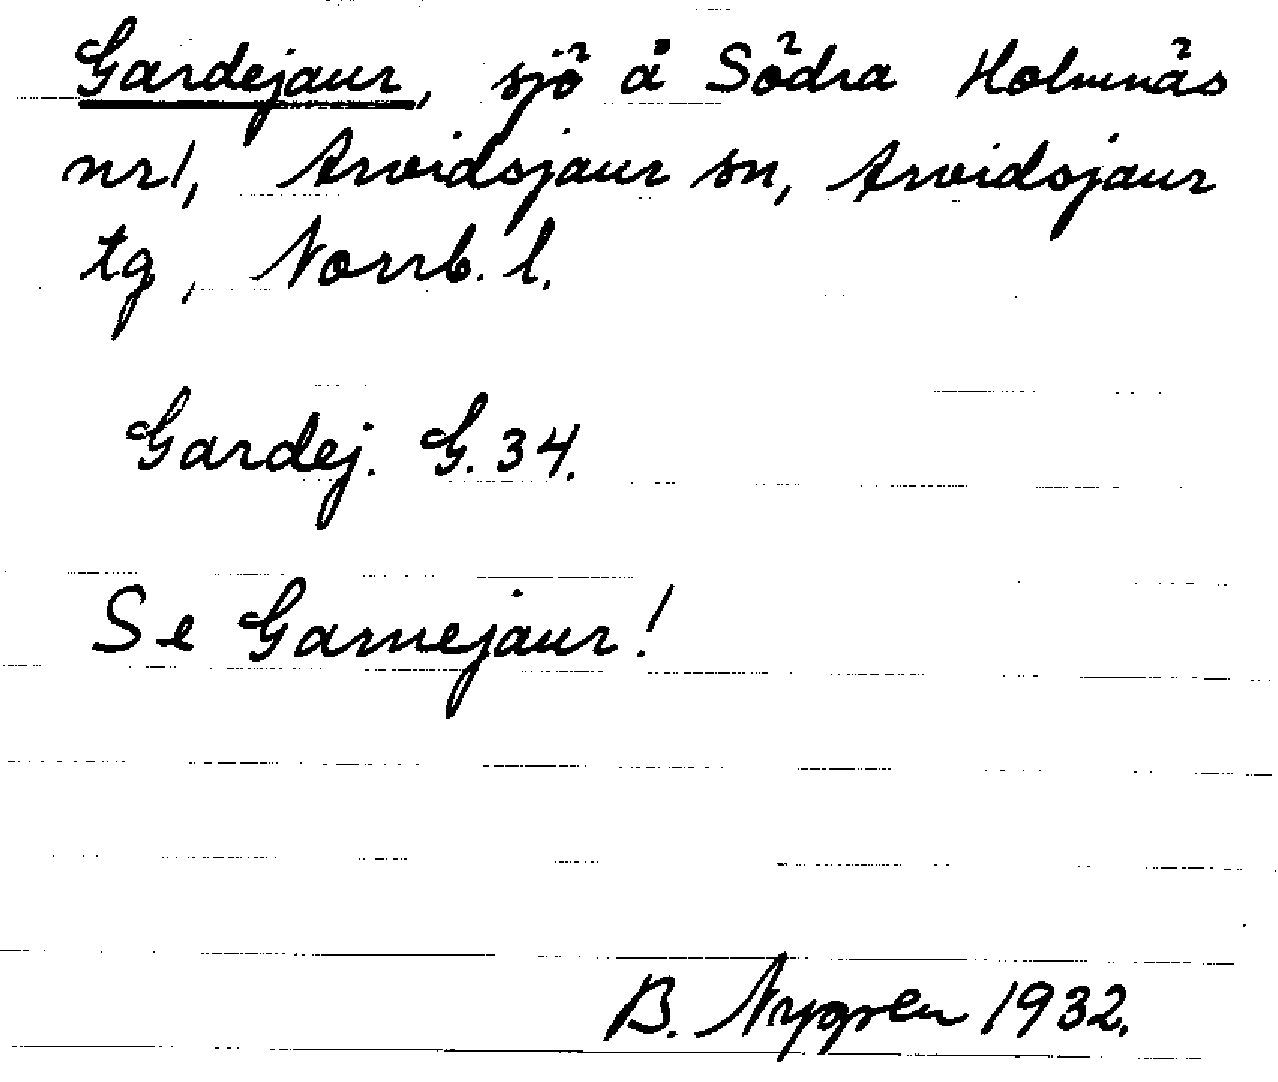 Gardejaur, sjö å Södra Holmnäs
nr 1, Arvidsjaur sn, Arvidsjaur
tg, Norrb. l.
Gardej. G. 34.
Se Garnejaur!
B. Nygren 1932.